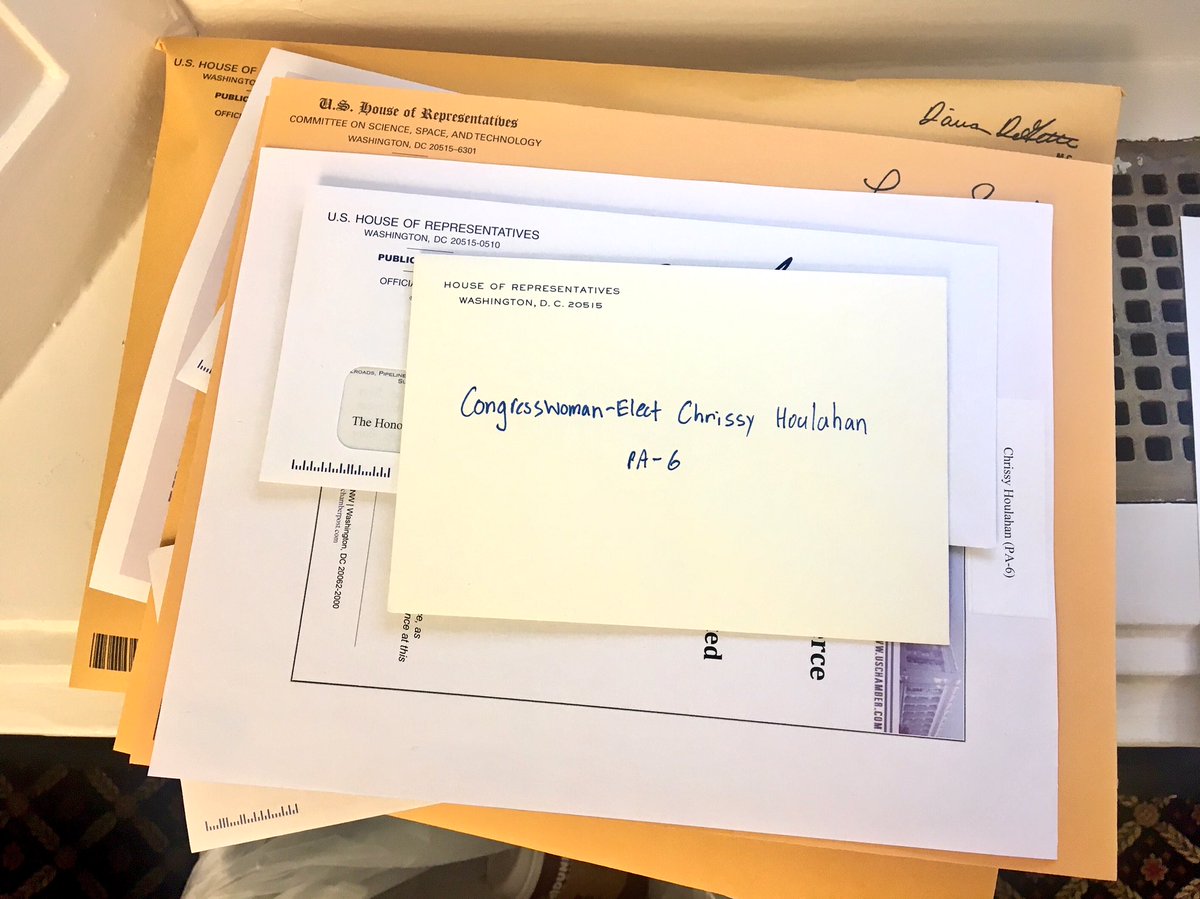 U.S. HOUSE OF
WASHINGTO
PUBLIC
OFFIC
Diana DeGette
M.C.
U.S. House of Representatives
COMMITTEE ON SCIENCE, SPACE, AND TECHNOLOGY
WASHINGTON, DC 20515–6301
U.S. HOUSE OF REPRESENTATIVES
WASHINGTON, DC 20515-0510
PUBLIC
OFFICIA
ROADS, PIPELINE
SU
The Hono
HOUSE OF REPRESENTATIVES
WASHINGTON, D. C. 20515
Congresswoman-Elect Chrissy Houlahan
PA-6
Chrissy Houlahan (PA-6)
NW | Washington, DC 20062-2000
chamberpost.com
ce, as
nce at this
ted
erce
WW.USCHAMBER.COM